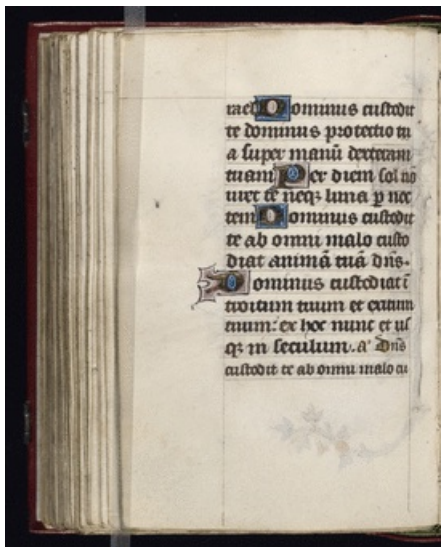 rael Dominus custodit
te dominus protectio tu
a super manū dexteram
tuam Per diem sol nō
uret te neqꝫ luna ꝑ noc
tem Dominus custodit
te ab omni malo custo
diat animā tuā dn̄s.
Dominus custodiat ī
troitum tuum et exitum
tuum: ex hoc nunc et us
qꝫ in seculum. a᷑ Dn̄s
custodit te ab omni malo cu